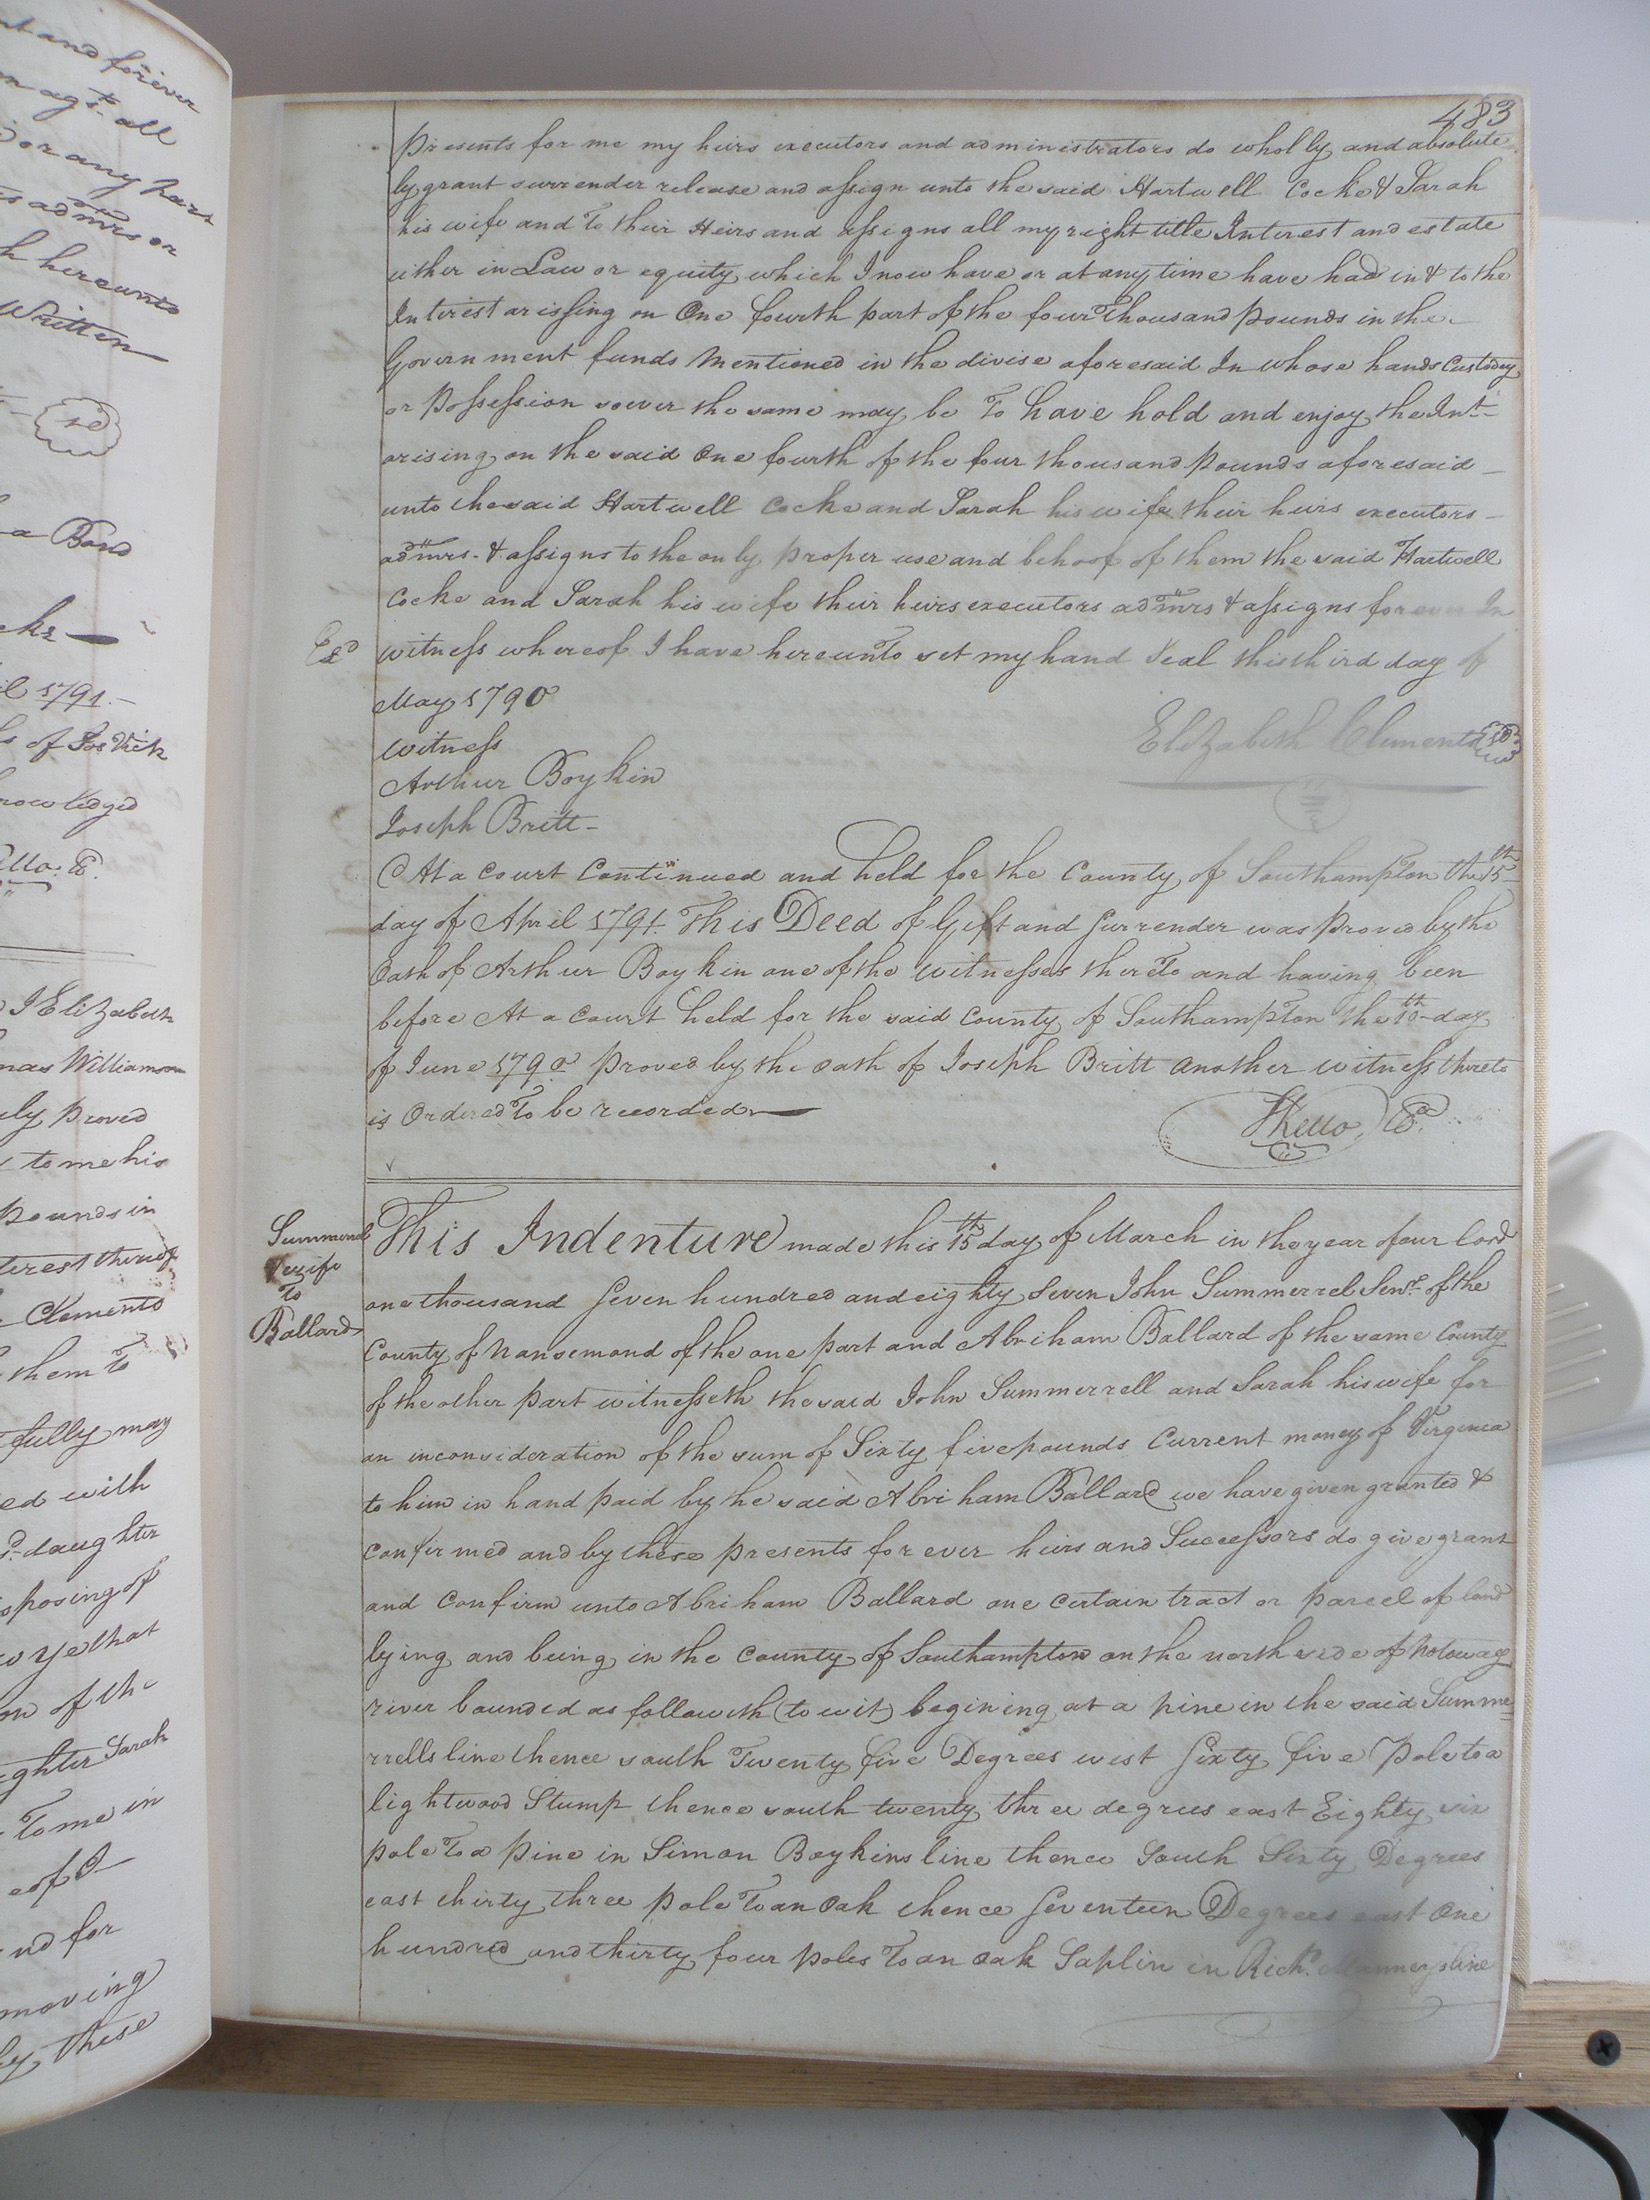 nt and forever
n agst. all
or any part
s admrs or
h hereunto
Written
Sd
a Bond
cke
il 1791.
s of Jos Vick
nowledged
ello. C.
I Elizabeth
mas Williamson
ely proved
to me his
pounds in
terest thereof
Clements
them To
fully may
ed with
d. daughter
sposing of
w ye that
on of the
ghter Sarah
To me in
eof I
nd for
moving
by these
483
presents for me my heirs executors and administrators do wholly and absolute
ly grant surrender release and assign unto the said Hartwell Cocke & Sarah
his wife and To their Heirs and assigns all my right title Interest and estate
either in Law or equity which I now have or at any time have had in & to the
Interest arissing on One fourth part of the four Thousand pounds in the
Government funds mentioned in the divise aforesaid In whose hands Custody
or Possession soever the same may be To have hold and enjoy the Int.
arising on the said One fourth of the four thousand pounds aforesaid
unto the said Hartwell Cocke and Sarah his wife their heirs executors
admrs. & assigns to the only proper use and behoof of them the said Hartwell
Cocke and Sarah his wife their heirs executors admrs & assigns forever In
Exd
witness whereof I have hereunto set my hand Seal this third day of
May 1790
Elizabeth Clements
witness
Arthur Boykin
Joseph Britt
At a Court Continued and held for the County of Southampton the 15th
day of April 1791. This Deed of Gift and Surrender was Proved by the
Oath of Arthur Boykin one of the witnesses thereTo and having been
before At a Court held for the said County of Southampton the 10th day
of June 1790 proved by the oath of Joseph Britt another witness thereto
is Ordered To be recorded
Kello, C.
Summerell
& wife
To
Ballard
This Indenture made this 15th day of March in the year of our lord
one thousand Seven hundred and eighty Seven John Summerrel Senr. of the
County of Nansemond of the one part and Abriham Ballard of the same County
of the other part witnesseth the said John Summerrell and Sarah his wife for
an inconsideration of the sum of Sixty five pounds Current money of Virginia
to him in hand paid by he said Abriham Ballard we have given granted &
confirmed and by these presents for ever heirs and Successors do give grant
and confirm unto Abriham Ballard one certain tract or parcel of land
lying and being in the County of Southampton on the north side of Notoway
river bounded as followeth (to wit) begining at a pine in the said Summe
rrells line thence south Twenty five Degrees west Sixty five Pole to a
lightwood Stump thence south twenty three degrees east Eighty six
pole To a pine in Simon Boykins line thence South Sixty Degrees
east thirty three pole To an Oak thence Seventeen Degrees east One
hundred and thirty four poles To an oak Saplin in Richd. Mannerys line